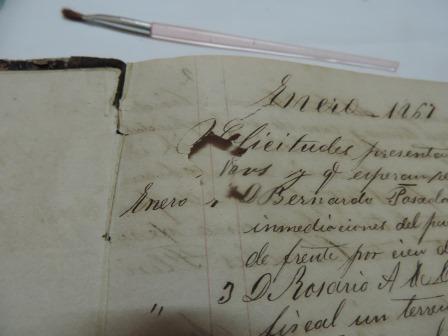 Enero 1867
Solicitudes presenta
y qe esperan
Enero D Bernardo Posada
inmediaciones del
de frente por cien
" 3 D Rosario A
fiscal un terre